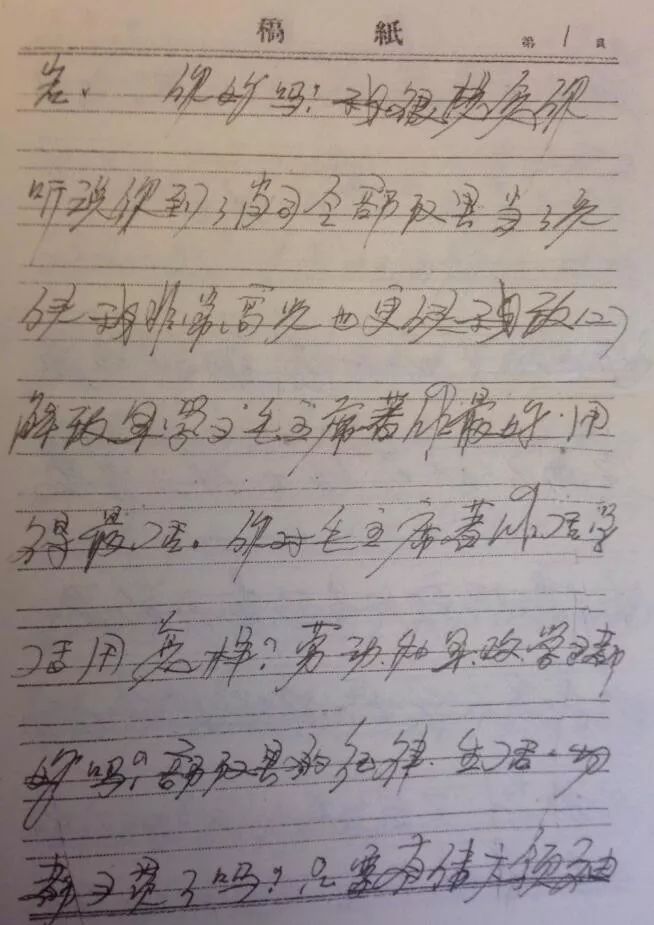 稿 紙
第 1 頁
岩、 你好吗?我很想念你
听说你到了省司令部收里当了兵
使我非常高兴也更使我敬仰
解放军学习毛主席著作最好.用
得最活。你对毛主席著作活学
活用怎样?劳动和军政学习都
好吗?部收里的纪律.生活一切
都习惯了吗?只要有伟大领袖